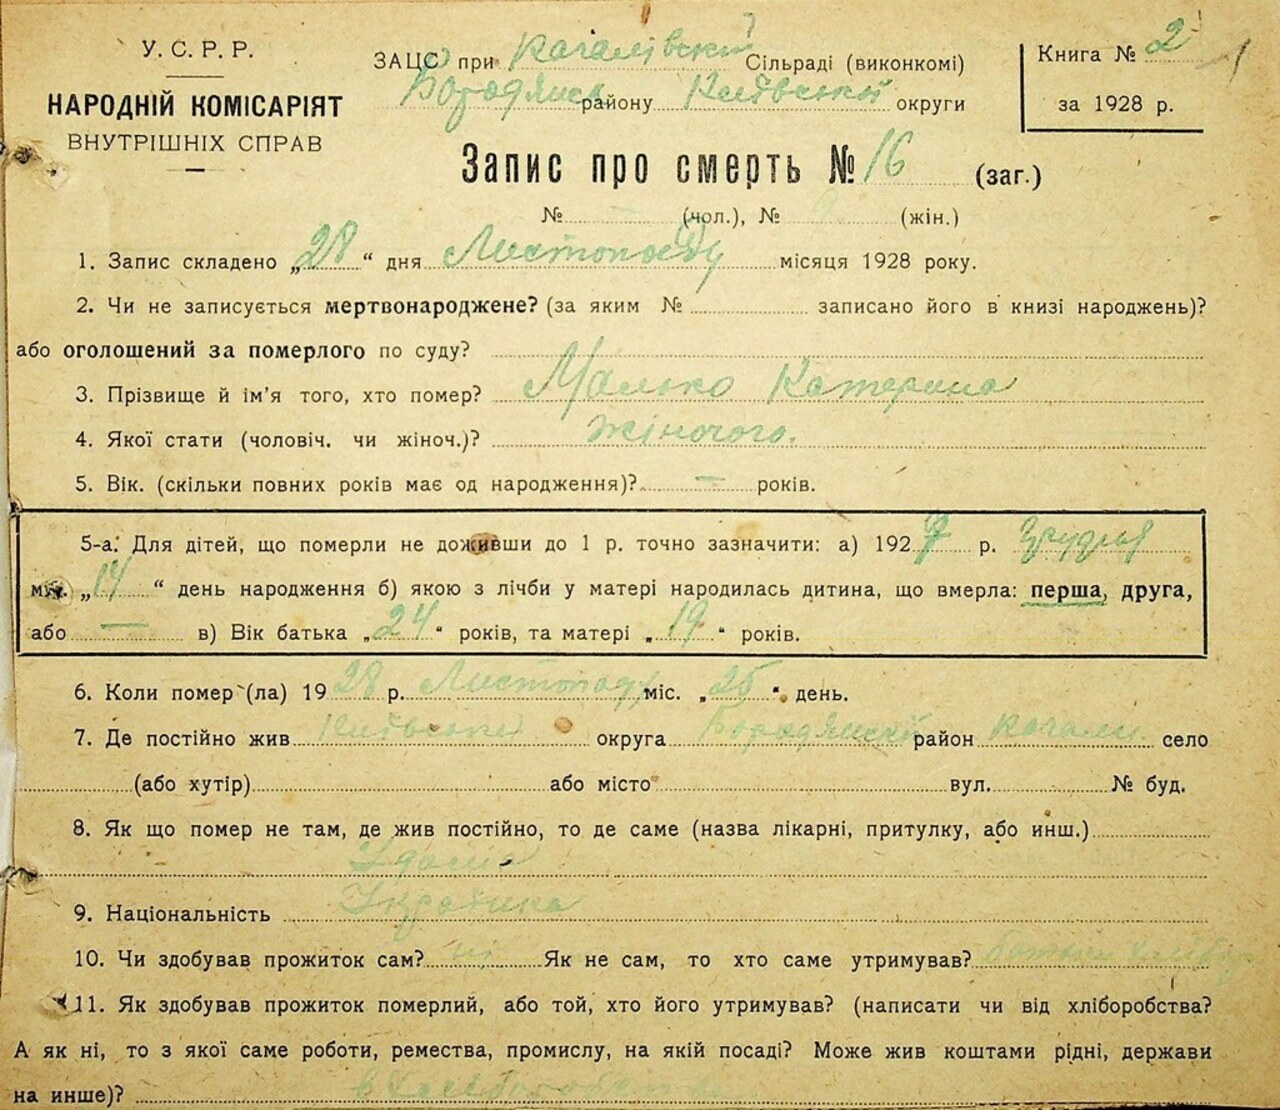 У. С. Р. Р.
НАРОДНІЙ КОМІСАРІЯТ
ВНУТРІШНІХ СПРАВ
ЗАЦС при Качалівській Сільраді (виконкомі)
Бородянськ району Київської округи
Книга № 2
за 1928 р.
Запис про смерть № 16 (заг.)
№ — (чол.), № (жін.)
1. Запис складено „28“ дня Листопаду місяця 1928 року.
2. Чи не записується мертвонароджене? (за яким № записано його в книзі народжень)?
або оголошений за померлого по суду?
3. Прізвище й ім'я того, хто помер? Малько Катерина
4. Якої стати (чоловіч. чи жіноч.)? жіночого.
5. Вік. (скільки повних років має од народження)? — років.
5-а. Для дітей, що померли не доживши до 1 р. точно зазначити: а) 1927 р. Грудня
міс. „14“ день народження б) якою з лічби у матері народилась дитина, що вмерла: перша, друга,
або — в) Вік батька „24“ років, та матері „19“ років.
6. Коли помер (ла) 1928 р. Листопаду міс. „25“ день.
7. Де постійно жив Київська округа Бородянський район Качали село
(або хутір) або місто вул. № буд.
8. Як що помер не там, де жив постійно, то де саме (назва лікарні, притулку, або инш.)
Удома
9. Національність Українка
10. Чи здобував прожиток сам? ні Як не сам, то хто саме утримував? батьки
11. Як здобував прожиток померлий, або той, хто його утримував? (написати чи від хліборобства?
А як ні, то з якої саме роботи, ремества, промислу, на якій посаді? Може жив коштами рідні, держави
на инше)?